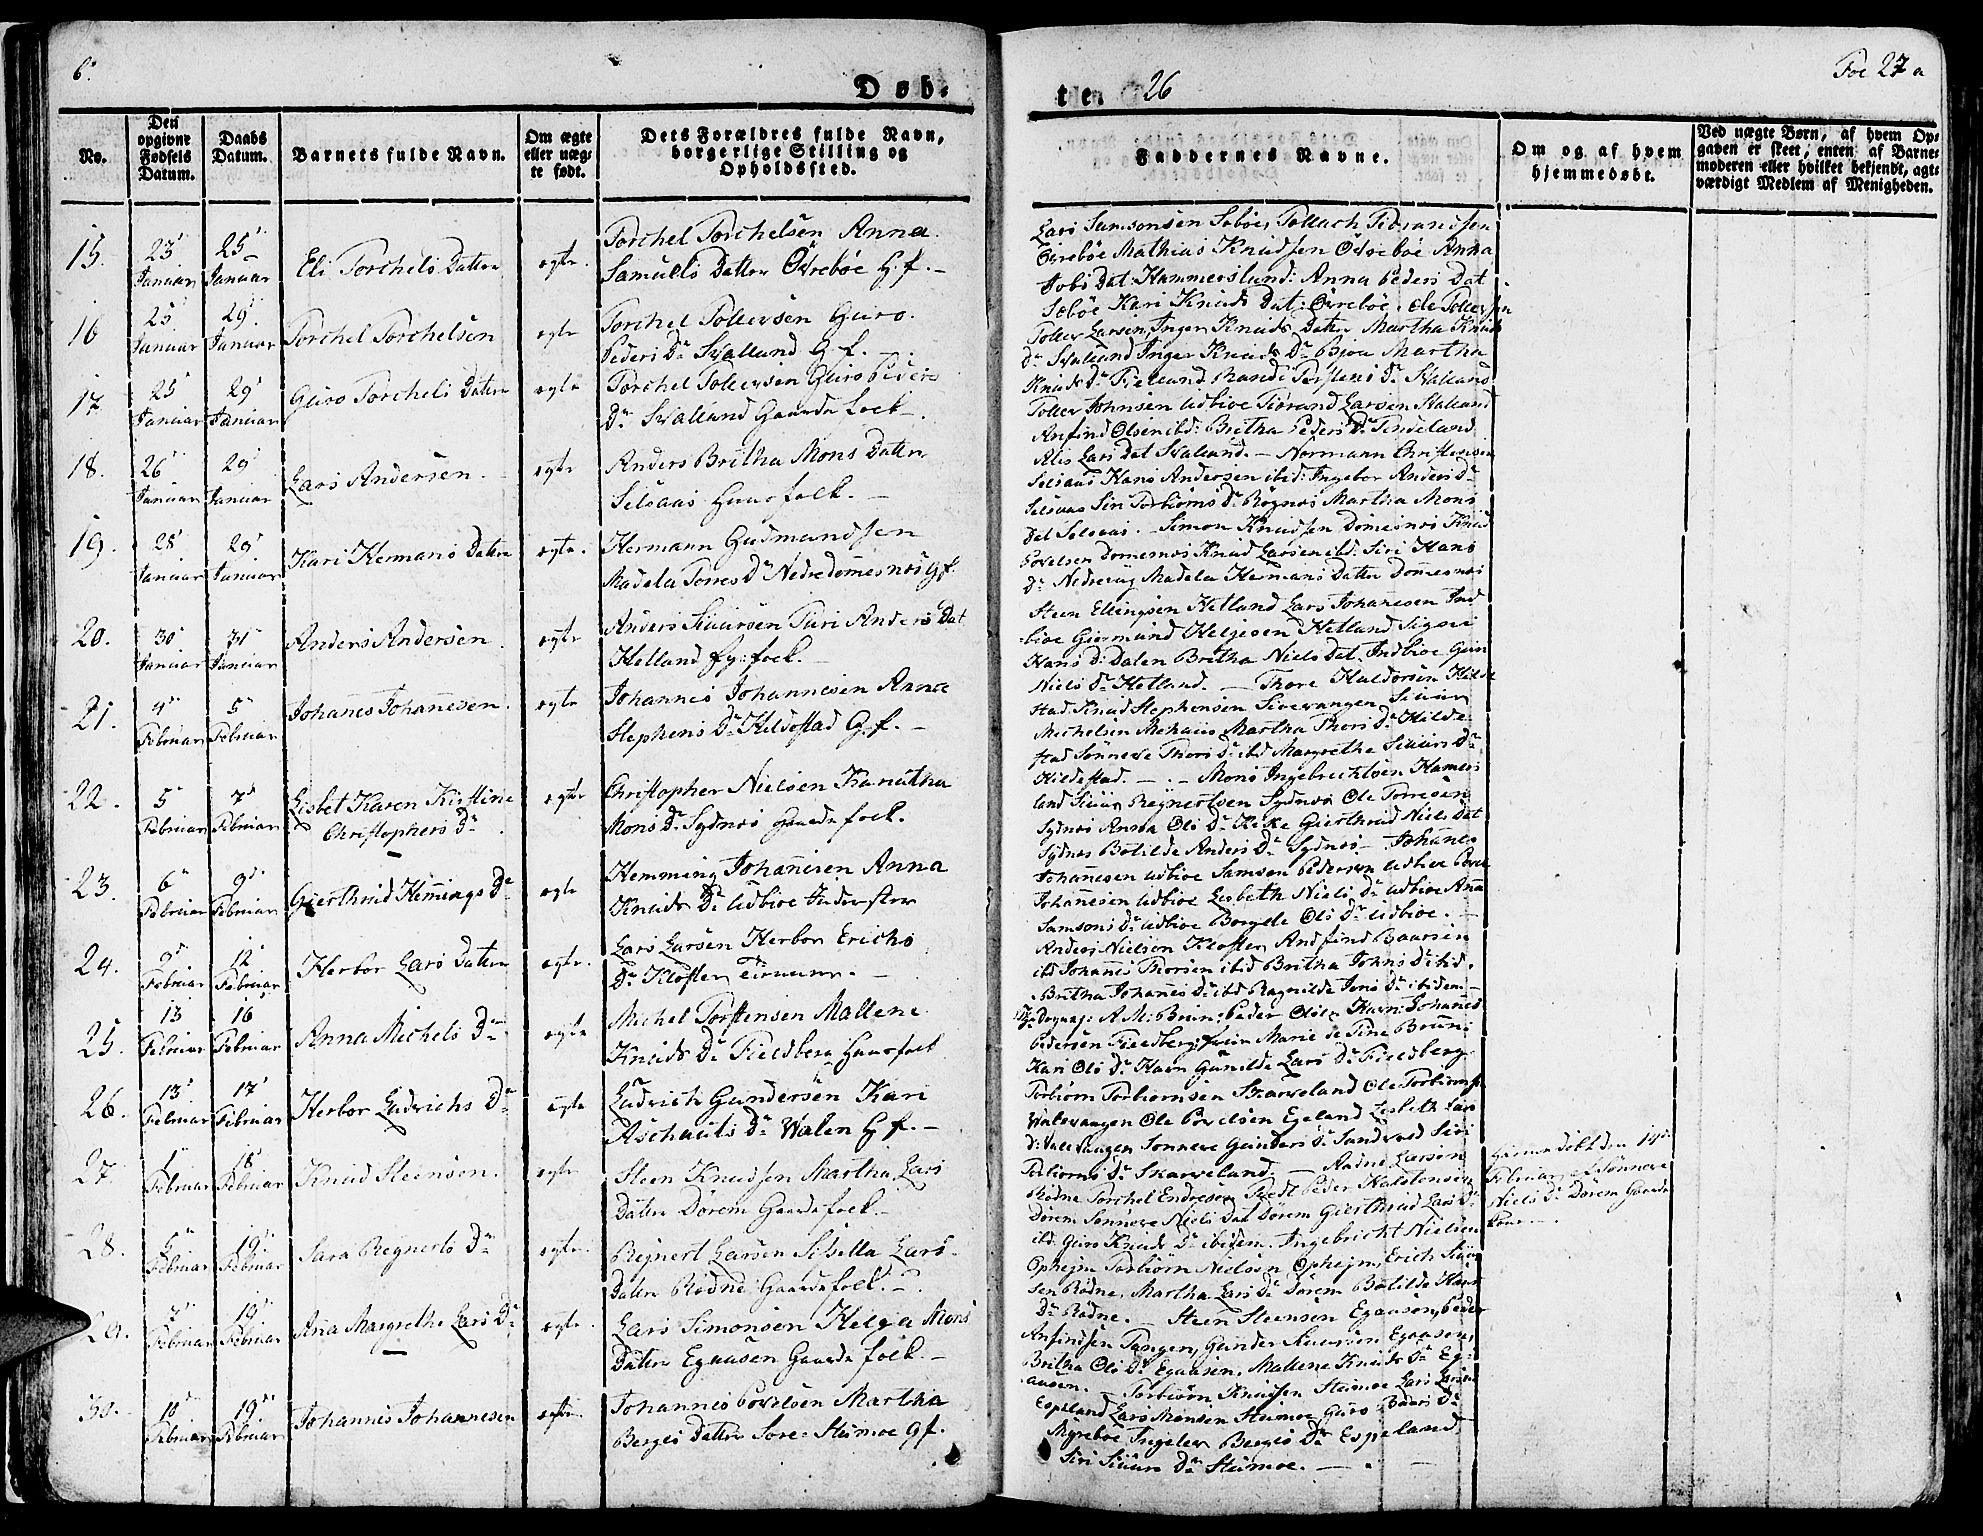 6.
Døb-
No.
Den opgivne Fødsels Datum.
Daabs Datum.
Barnets fulde Navn.
Om ægte eller uægte født.
Dets Forældres fulde Navn, borgerlige Stilling og Opholdssted.
15. 23 Januar 25 Januar Eli Torchels Datter ægte. Torchel Torchelsen Anna
Samuels Datter Övrebøe G. f. –
16 25 Januar 29 Januar Torchel Torchelsen ægte Torchel Tollevsen Guro
Peders Dr Svalland G. f.
17 25 Januar 29 Januar Guro Torchels Datter ægte Torchel Tollevsen Guro Peders
Dr Svalland Gaarde folck.
18. 26 Januar 29 Januar Lars Andersen ægte Anders Britha Mons Datter
Selsaas Huusfolck. –
19. 28 Januar 29 Januar Kari Hermans Datter ægte. Hermann Gudmundsen
Madela Torres Dr Nedredomesnes G. f.
20. 30 Januar 31 Januar Anders Andersen ægte Anders Siuursen Turi Anders Dat
Hetland folck. –
21. 4 Februar 5 Februar Johanes Johanesen. ægte Johannes Johannesen Anna
Stephens Dr Hildestad G. f. –
22. 5 Februar 7 Februar Lisbet Karen Kirstine
Christophers Dr ægte Christopher Nielsen Kanutha
Mons Dr Sydnes gaarde folck.
23. 6 Februar 9 Februar Gierthrud Hemings Dr ægte Hemming Johanesen Anna
Knuds Dr Udbioe
24. 9 Februar 12 Februar Herbor Lars Datter ægte. Lars Larsen Herbor Erichs
Dr Kloster
25. 13 Februar 16 Februar Anna Michels Dr ægte Michel Torstensen Mallene
Knuds Dr Fieldberg Huusfolck
26. 13 Februar 17 Februar Herbor Ludrichs Dr ægte Ludrich Gundersen Kari
Aschauts Dr Walen G. f. –
27. 1 Februar 18 Februar Knud Steensen. ægte Steen Knudsen Martha Lars
Datter Dørem Gaarde folck –
28. 5 Februar 19 Februar Sara Regnerts Dr ægte. Regnert Larsen Sissilla Lars
Datter Rødne Gaarde folck. –
29. 7 Februar 19 Februar Ana Margrethe Lars Dr ægte. Lars Simonsen Helga Mons
Datter Egaasen Gaarde folck. –
30. 10 Februar 19 Februar Johannes Johannesen ægte. Johannes Povelsen Martha
Berges Datter Sore: Steimoe G. f.
ten
26
Foe 27 a
Faddernes Navne.
Om og af hvem hjemmedøbt.
Ved uægte Børn, af hvem Opgaven er skeet, enten af Barnemoderen eller hvilket bekjendt, agtværdigt Medlem af Menigheden.
Lars Samsonsen Sæbøe, Tollach Tiørandsen
Övrebøe Mathias Knudsen Övrebøe Anna
Jobs Dat: Hammerslund: Anna Peders Dat
Sæbøe Kari Knuds Dat: Övrebøe. Ole Tollevsen
Tollev Larsen, Inger Knuds Datter Martha Knuds
Dr Svalland Inger Knuds Dr Bioe Martha
Knuds Dr Fielland Torstens Dr Svalland
Tollev Johnsen Udbioe Tiørand Larsen Svalland
Anfind Olsen ibd: Britha Peders Dr Tindeland
Alis Lars Dat Svalland. – Normann Christensen
Selsaas Hans Andersen ibid: Ingebor Anders Dr
Selsaas Siri Torbiørns Dr Rognes Martha Mons
Dat Selsaas. – Simon Knudsen Domesnes Knud
Povelsen Domesnes Knud Larsen ibd. Siri Hans
Dr Nedrevaag Madela Hermans Datter Domesnes
Steen Ellingsen Hetland Lars Johanesen Ind
bioe Giermund Helgesen Hetland Signi
Hans D: Dalen Britha Niels Dat. Indbioe Guri
Niels Dr Hetland. – Thore Haldorsen Hilde
stad Knud Stephensen Siverangen Siuur
Michelsen Mehuus Martha Thors Dr Hilde
stad Sønneve Thors Dr ibd Margrethe Siuurs Dr
Hildestad. – . – Mons Ingebrechtsen Hamers
land Siuur Regnertsen Sydnes Ole Torresen
Sydnes Anna Ols Dr Gierthrud Niels Dat
Sydnes Botilde Anders Dr Sydnes – Johanes
Johanesen Udbioe Samson Pedersen Udbioe Povel
Johanesen Udbioe Lisbeth Niels Dr Udbioe Ana
Samsons Dr Udbioe Borgele Ols Dr Udbioe. –
Anders Nielsen Kloster Andfind Baarsen
ibd Johanes Thorsen ibid Britha Johns Dr ibd.
Britha Johanes Dr ibd Ragnilde Jens Dr ibidem –
A. M: Brun, Peder Havn: Johanes
Pedersen Fieldberg Marie de Fine Bruun:
Kari Ols Dr Havn Gunilde Lars Dr Fieldberg
Torbiørn Torbiørnsen Skarveland Ole Torbiørnsen
Walevaagen Ole Povelsen Egeland Lisbeth Lars
D: Valevaagen Sonneve Gunders Dr Sandvad Siri
Torbiørns Dr Skarveland. – Aadne Larsen
Rødne Torchel Endresen Tvedt Peder Halstensen
Dørem Sønneve Niels Dat Dørem Gierthrud Lars Dr
ibd. Guro Knuds Dr ibidem. Ingebricht Nielsen
Ophejm Torbiørn Nielsen Ophejm, Erich Siuur
sen Rødne. Martha Lars Dr Dørem Botilde Hans
Dr Rødne. – Steen Steensen Egaasen, Peder
Anfindsen Tangen, Gunder Siuursen Egaasen,
Britha Ols Dr Egaasen. Mallene Knuds Dr Eg-
aasen. – Torbiørn Knudsen Steimoe Lars Larsen
Espeland Lars Monsen Steimoe Guro Baars Dr
Myreboe Ingelev Berges Dr Espeland
Siri Siuurs Dr Steimoe. – . –
hiemmedøbt den
Februar, af Sønneve
Niels Dr Dørem Gaarde
kone. – .